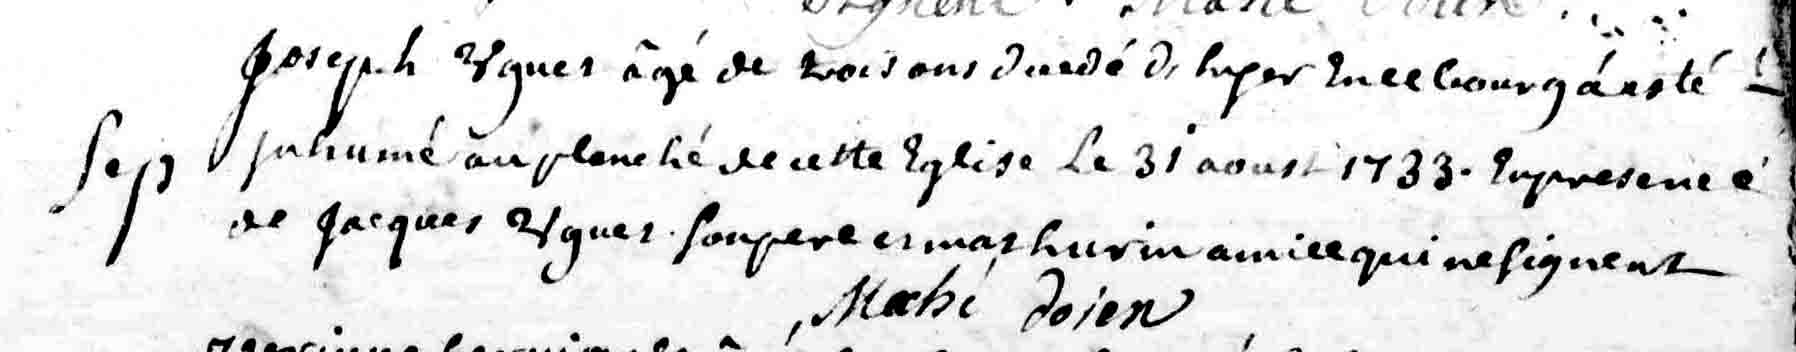 Joseph Uguet âgé de trois ans décédé d'hyer en ce bourg á esté
Sep inhumé au planché de cette Eglise Le 31 aoust 1733. En presence
de Jacques Uguet son pere et mathurin amice qui ne signent
Mahé doien